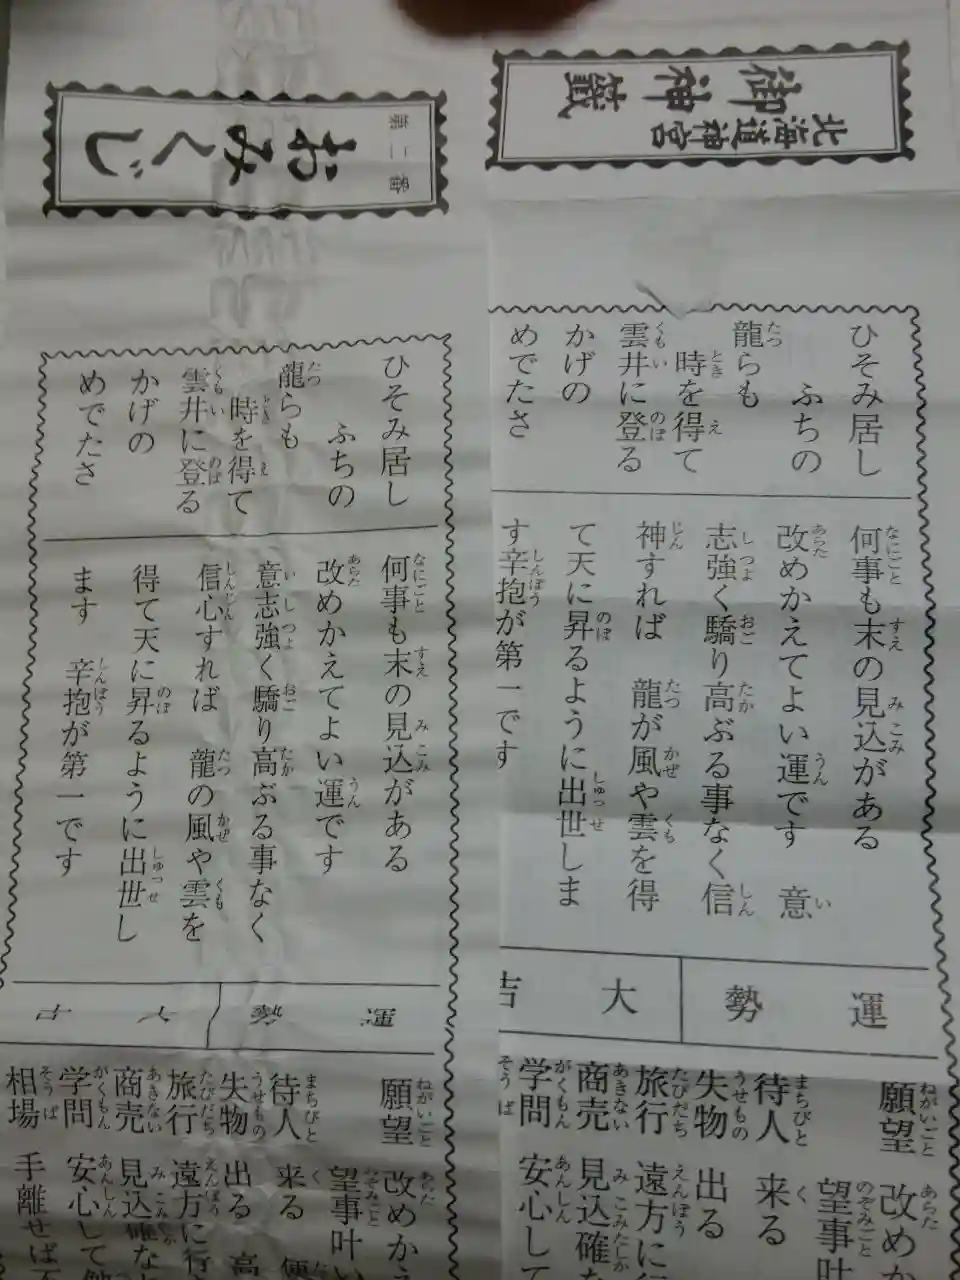 北海道神宮
御神籤
ひそみ居し
ふちの
龍らも
時を得て
雲井に登る
かげの
めでたさ
何事も末の見込がある
改めかえてよい運です 意
志強く驕り高ぶる事なく信
神すれば 龍が風や雲を得
て天に昇るように出世しま
す辛抱が第一です
運勢 大吉
願望 改めか
望事叶
待人 来る
失物 出る
旅行 遠方に行
商売 見込確
学問 安心して
第二番
おみくじ
ひそみ居し
ふちの
龍らも
時を得て
雲井に登る
かげの
めでたさ
何事も末の見込がある
改めかえてよい運です
意志強く驕り高ぶる事なく
信心すれば 龍の風や雲を
得て天に昇るように出世し
ます 辛抱が第一です
運勢 大吉
願望 改めかえ
望事叶い
待人 来る 便
失物 出る 高
旅行 遠方に行
商売 見込確な
学問 安心して勉
相場 手離せば